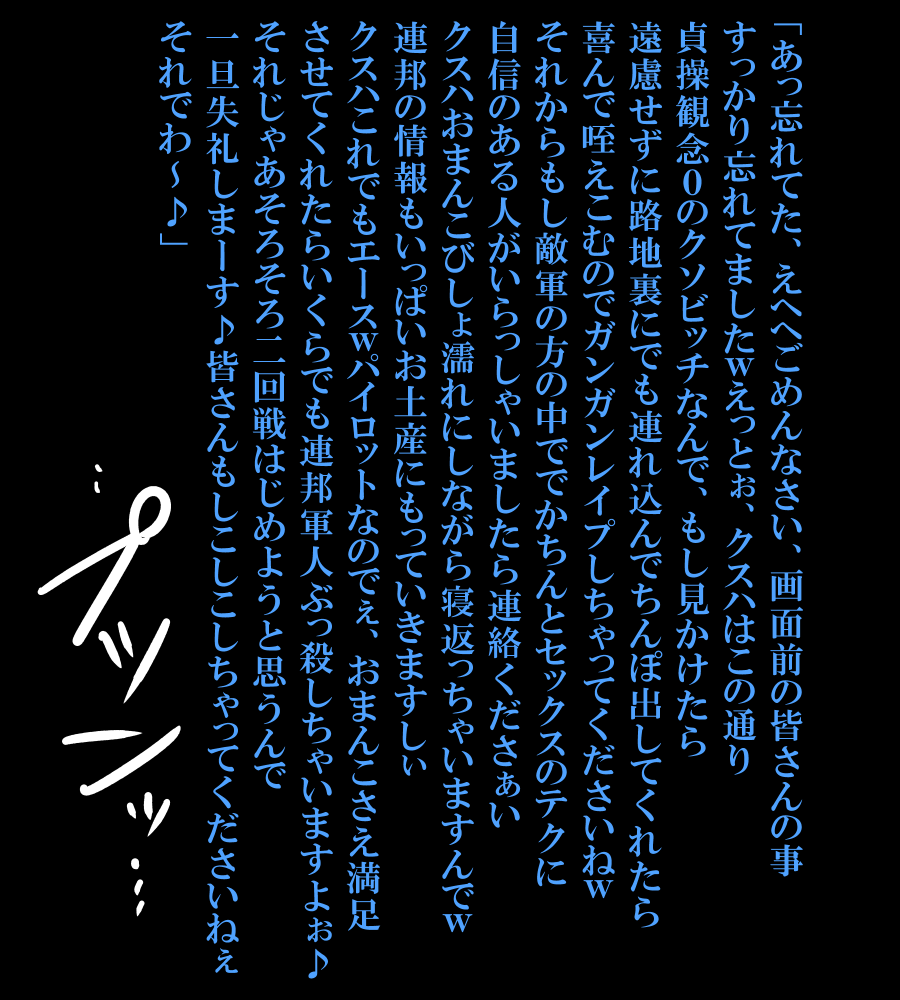 「あっ忘れてた、えへへごめんなさい、画面前の皆さんの事
すっかり忘れてましたwえっとぉ、クスハはこの通り
貞操観念0のクソビッチなんで、もし見かけたら
遠慮せずに路地裏にでも連れ込んでちんぽ出してくれたら
喜んで咥えこむのでガンガンレイプしちゃってくださいねw
それからもし敵軍の方の中ででかちんとセックスのテクに
自信のある人がいらっしゃいましたら連絡くださぁい
クスハおまんこびしょ濡れにしながら寝返っちゃいますんでw
連邦の情報もいっぱいお土産にもっていきますしぃ
クスハこれでもエースwパイロットなのでぇ、おまんこさえ満足
させてくれたらいくらでも連邦軍人ぶっ殺しちゃいますよぉ♪
それじゃあそろそろ二回戦はじめようと思うんで
一旦失礼しまーす♪皆さんもしこしこしちゃってくださいねぇ
それでわ~♪」
プツンッ…